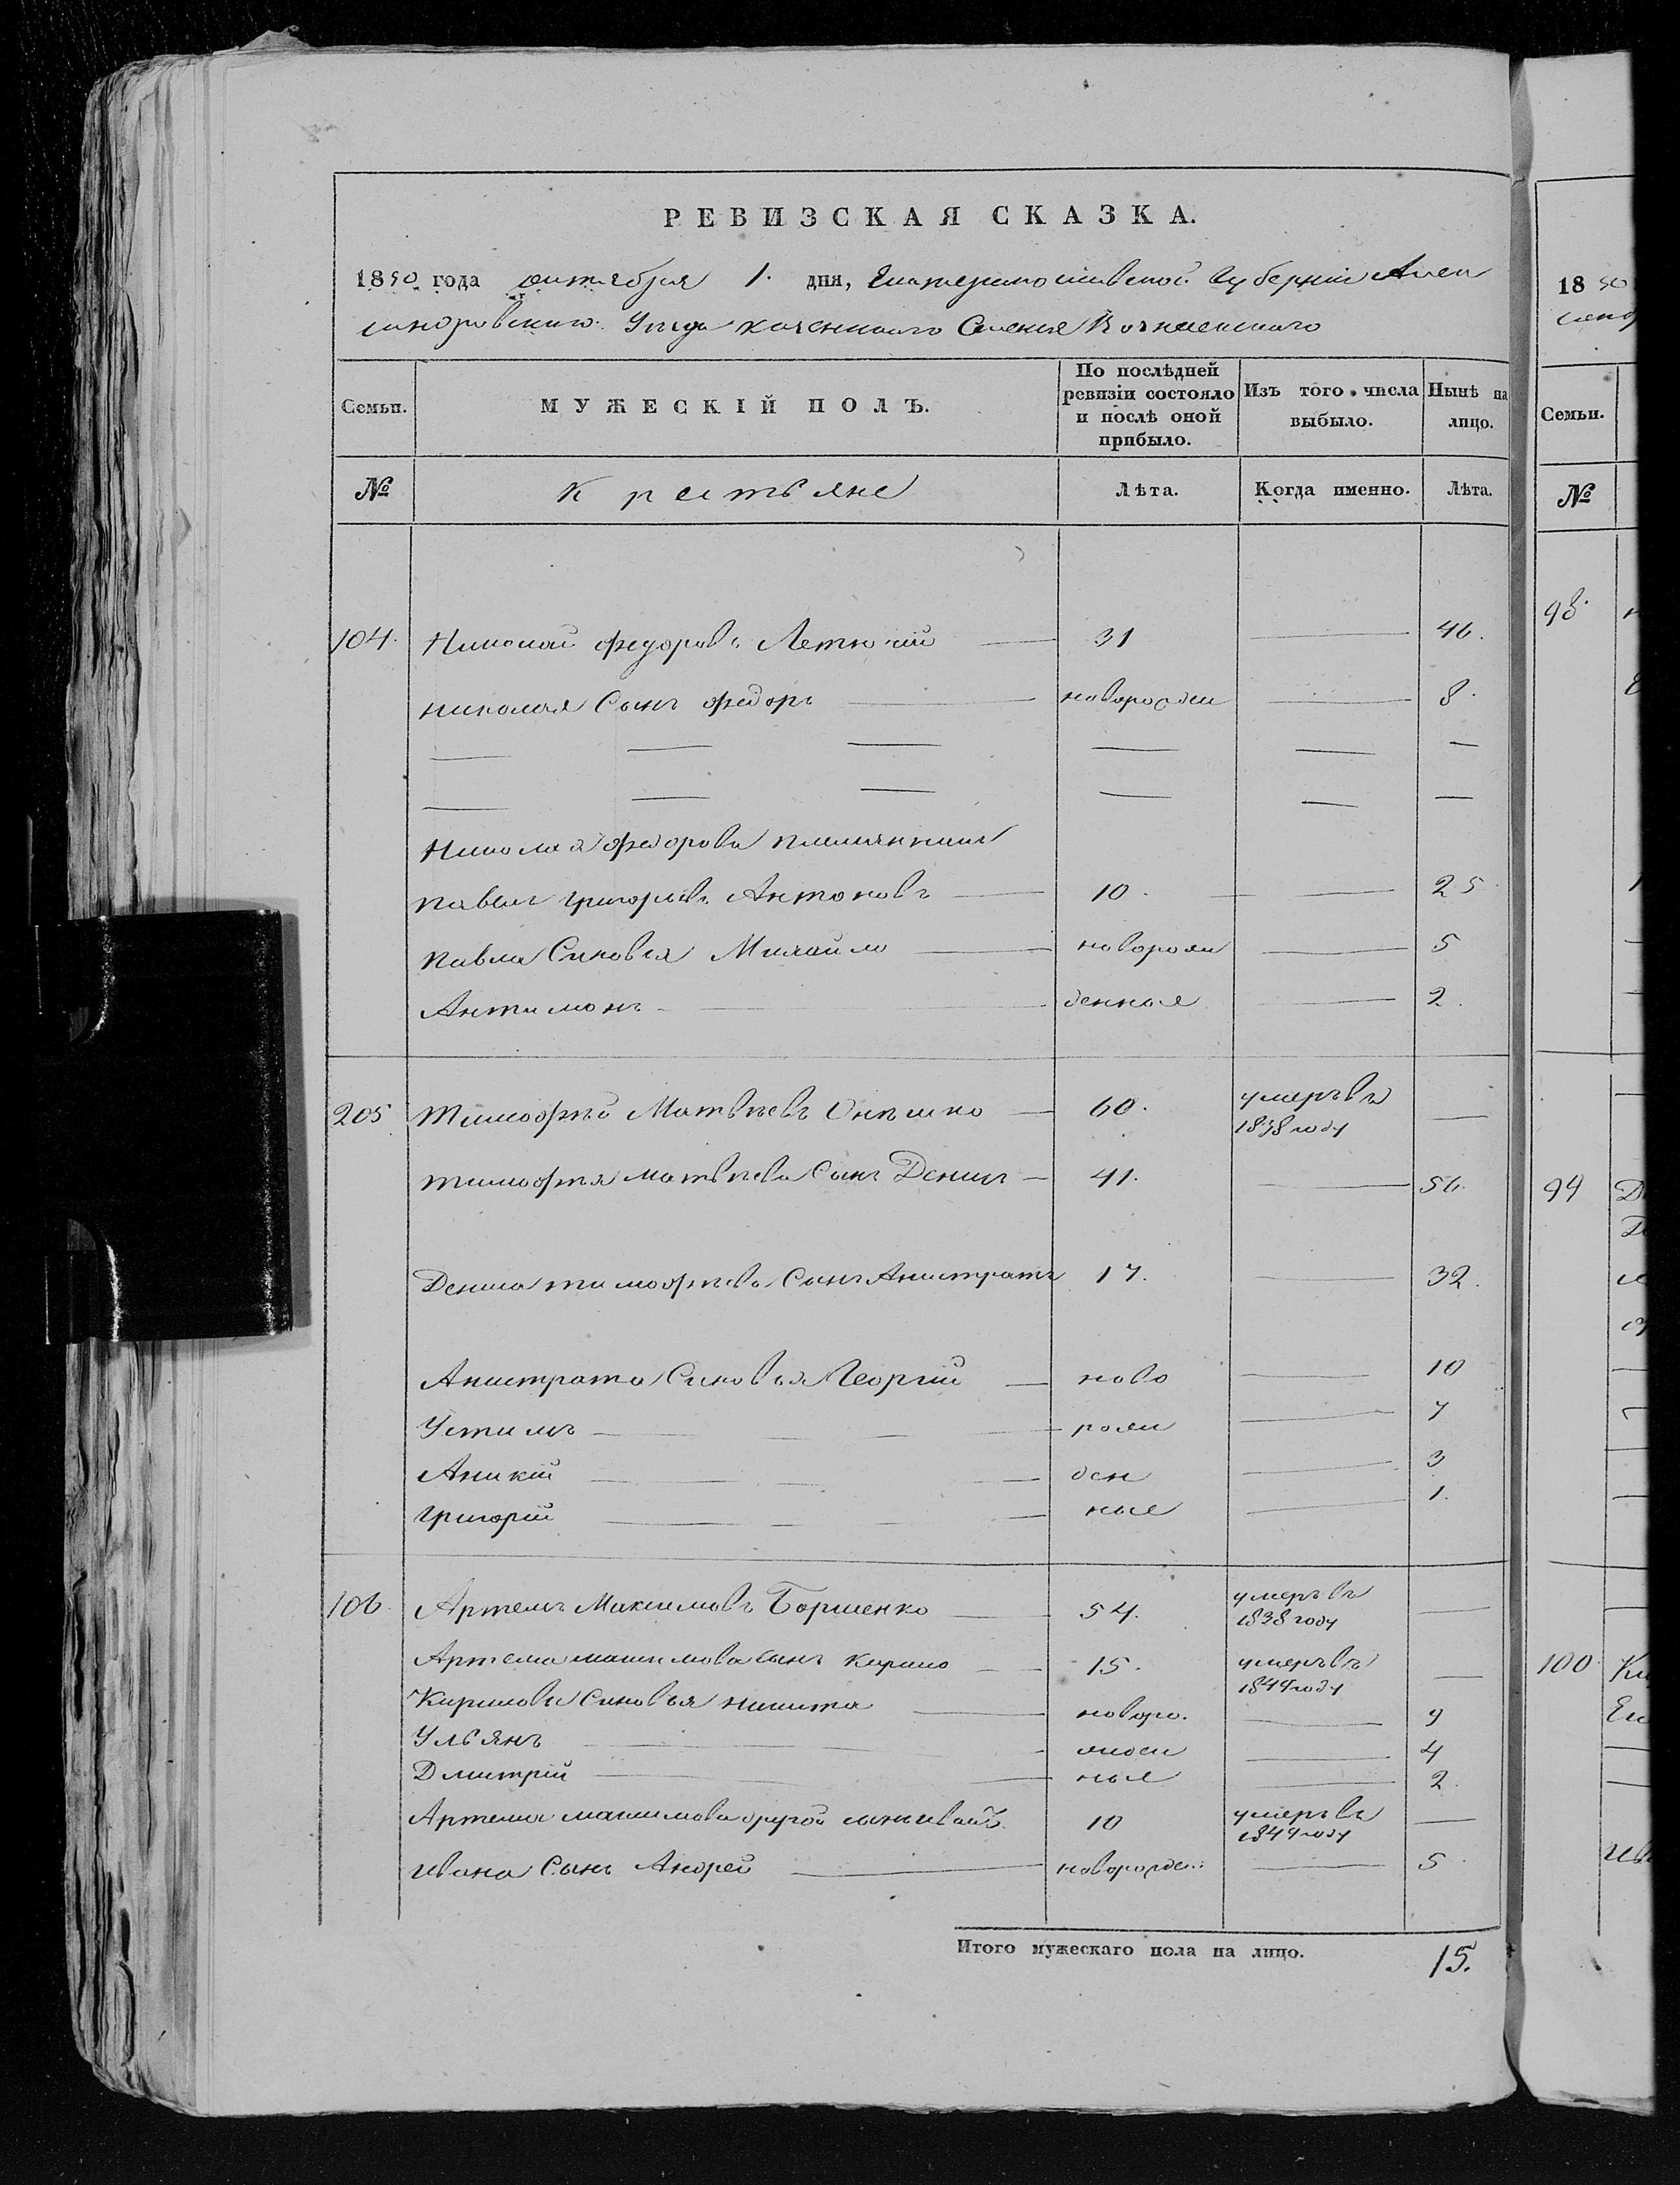 РЕВИЗСКАЯ СКАЗКА.
1850 года октября 1. дня, Екатеринославской Губерніи Алек
сандровскаго Уезда казеннаго Селенія
Семьи. МУЖЕСКІЙ ПОЛЪ. По послѣдней ревизіи состояло и послѣ оной прибыло. Изъ того числа выбыло. Нынѣ на лицо.
№ Крестьяне Лѣта. Когда именно. Лѣта.
104. Николай федоровъ Летючій 31 46.
николая Сынъ федоръ новорожден 8.
Николая федорова племянники
павелъ григорьевъ Антоновъ 10. 25
павла Синовья Михайло наворож 5
Антимонъ денные 2.
205 тимофѣй Матвѣевъ 60. умеръ въ 1838 году
тимофѣя матвѣева Сынъ Денисъ 41. 56.
Дениса тимофѣева Сынъ Анистратъ 17. 32.
Анистрата Синовья Георгій ново 10
Устимъ рож 7
Аникій ден 3
григорій ные 1.
106. Артемъ Максимовъ Борщенко 54. умеръ въ 1838 году
Артема максимова сынъ Кирило 15. умеръ въ 1849 году
Кирилови Синовья никита новоро. 9
Ульянъ жден 4
Дмитрій ные 2.
Артема максимова другой сынъ иванъ 10 умеръ въ 1849 году
ивана Сынъ Андрей новорожден: 5
Итого мужескаго пола на лицо. 15.
18 50
Семьи.
№
98.
94
100